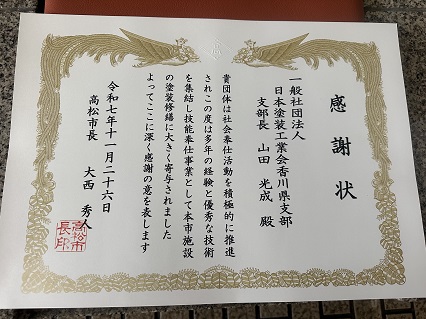 感謝状
一般社団法人
日本塗装工業会香川県支部
支部長 山田 光成 殿
貴団体は社会奉仕活動を積極的に推進
されこの度は多年の経験と優秀な技術
を集結し技能奉仕事業として本市施設
の塗装修繕に大きく寄与されました
よってここに深く感謝の意を表します
令和七年十一月二十六日
高松市長 大西 秀人
高松市
長印